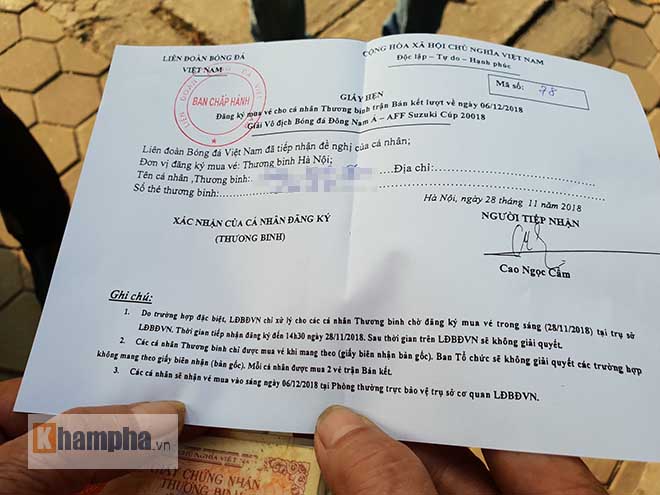 LIÊN ĐOÀN BÓNG ĐÁ
VIỆT NAM
CỘNG HÒA XÃ HỘI CHỦ NGHĨA VIỆT NAM
Độc lập – Tự do – Hạnh phúc
BAN CHẤP HÀNH
Mã số: 78
GIẤY HẸN
Đăng ký mua vé cho cá nhân Thương binh trận Bán kết lượt về ngày 06/12/2018
Giải Vô địch Bóng đá Đông Nam Á – AFF Suzuki Cúp 20018
Liên đoàn Bóng đá Việt Nam đã tiếp nhận đề nghị của cá nhân;
Đơn vị đăng ký mua vé: Thương binh Hà Nội;
Tên cá nhân ,Thương binh:
Địa chỉ:
Số thẻ thương binh:
Hà Nội, ngày 28 tháng 11 năm 2018
XÁC NHẬN CỦA CÁ NHÂN ĐĂNG KÝ
(THƯƠNG BINH)
NGƯỜI TIẾP NHẬN
Cao Ngọc Cầm
Ghi chú:
1. Do trường hợp đặc biệt, LĐBĐVN chỉ xử lý cho các cá nhân Thương binh chờ đăng ký mua vé trong sáng (28/11/2018) tại trụ sở
LĐBĐVN. Thời gian tiếp nhận đăng ký đến 14h30 ngày 28/11/2018. Sau thời gian trên LĐBĐVN sẽ không giải quyết.
2. Các cá nhân Thương binh chỉ được mua vé khi mang theo (giấy biên nhận bản gốc). Ban Tổ chức sẽ không giải quyết các trường hợp
không mang theo giấy biên nhận (bản gốc). Mỗi cá nhân được mua 2 vé trận Bán kết.
3. Các cá nhân sẽ nhận vé mua vào sáng ngày 06/12/2018 tại Phòng thường trực bảo vệ trụ sở cơ quan LĐBĐVN.
Khampha.vn
GIẤY CHỨNG NHẬN
THƯƠNG BINH